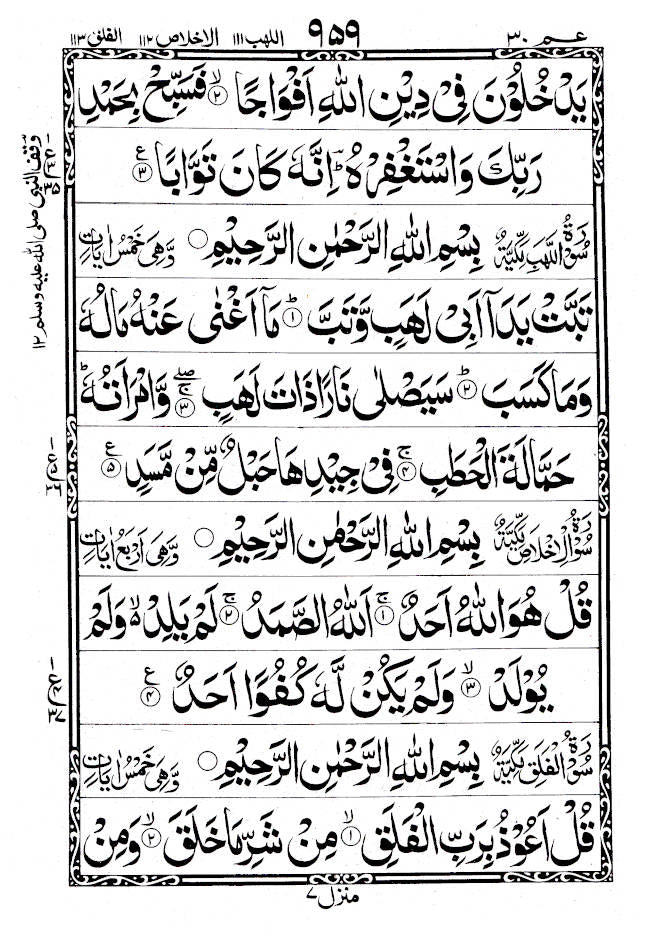 عم ٣٠ ٩٥٩ اللهب ١١١ الاخلاص ١١٢ الفلق ١١٣
يَدۡخُلُوۡنَ فِىۡ دِيۡنِ اللّٰهِ اَفۡوَاجًا ۙ‏ ٢ فَسَبِّحۡ بِحَمۡدِ
رَبِّكَ وَاسۡتَغۡفِرۡهُ‌ ؕ اِنَّهٗ كَانَ تَوَّابًا ٣ ع
سُوۡرَةُ اللَّهَبِ مَكِّيَّةٌ بِسۡمِ اللّٰهِ الرَّحۡمٰنِ الرَّحِيۡمِ ○ وَّهِىَ خَمۡسُ اٰيَاتٍ
تَبَّتۡ يَدَاۤ اَبِىۡ لَهَبٍ وَّتَبَّ ؕ‏ ١ مَاۤ اَغۡنٰى عَنۡهُ مَالُهٗ
وَمَا كَسَبَ ؕ‏ ٢ سَيَصۡلٰى نَارًا ذَاتَ لَهَبٍ ۖۚ‏ ٣ وَّامۡرَاَتُهٗ ؕ
حَمَّالَةَ الۡحَطَبِ‌ ۚ‏ ٤ فِىۡ جِيۡدِهَا حَبۡلٌ مِّنۡ مَّسَدٍ ٥ ع
سُوۡرَةُ الۡاِخۡلَاصِ مَكِّيَّةٌ بِسۡمِ اللّٰهِ الرَّحۡمٰنِ الرَّحِيۡمِ ○ وَّهِىَ اَرۡبَعُ اٰيَاتٍ
قُلۡ هُوَ اللّٰهُ اَحَدٌ‌ ۚ‏ ١ اَللّٰهُ الصَّمَدُ‌ ۚ‏ ٢ لَمۡ يَلِدۡ ۙ وَلَمۡ
يُوۡلَدۡ ۙ‏ ٣ وَلَمۡ يَكُنۡ لَّهٗ كُفُوًا اَحَدٌ ٤ ع
سُوۡرَةُ الۡفَلَقِ مَكِّيَّةٌ بِسۡمِ اللّٰهِ الرَّحۡمٰنِ الرَّحِيۡمِ ○ وَّهِىَ خَمۡسُ اٰيَاتٍ
قُلۡ اَعُوۡذُ بِرَبِّ الۡفَلَقِ ۙ‏ ١ مِنۡ شَرِّ مَا خَلَقَ ۙ‏ ٢ وَمِنۡ
منزل ٧
وقف النبى صلى الله عليه وسلم ١٢